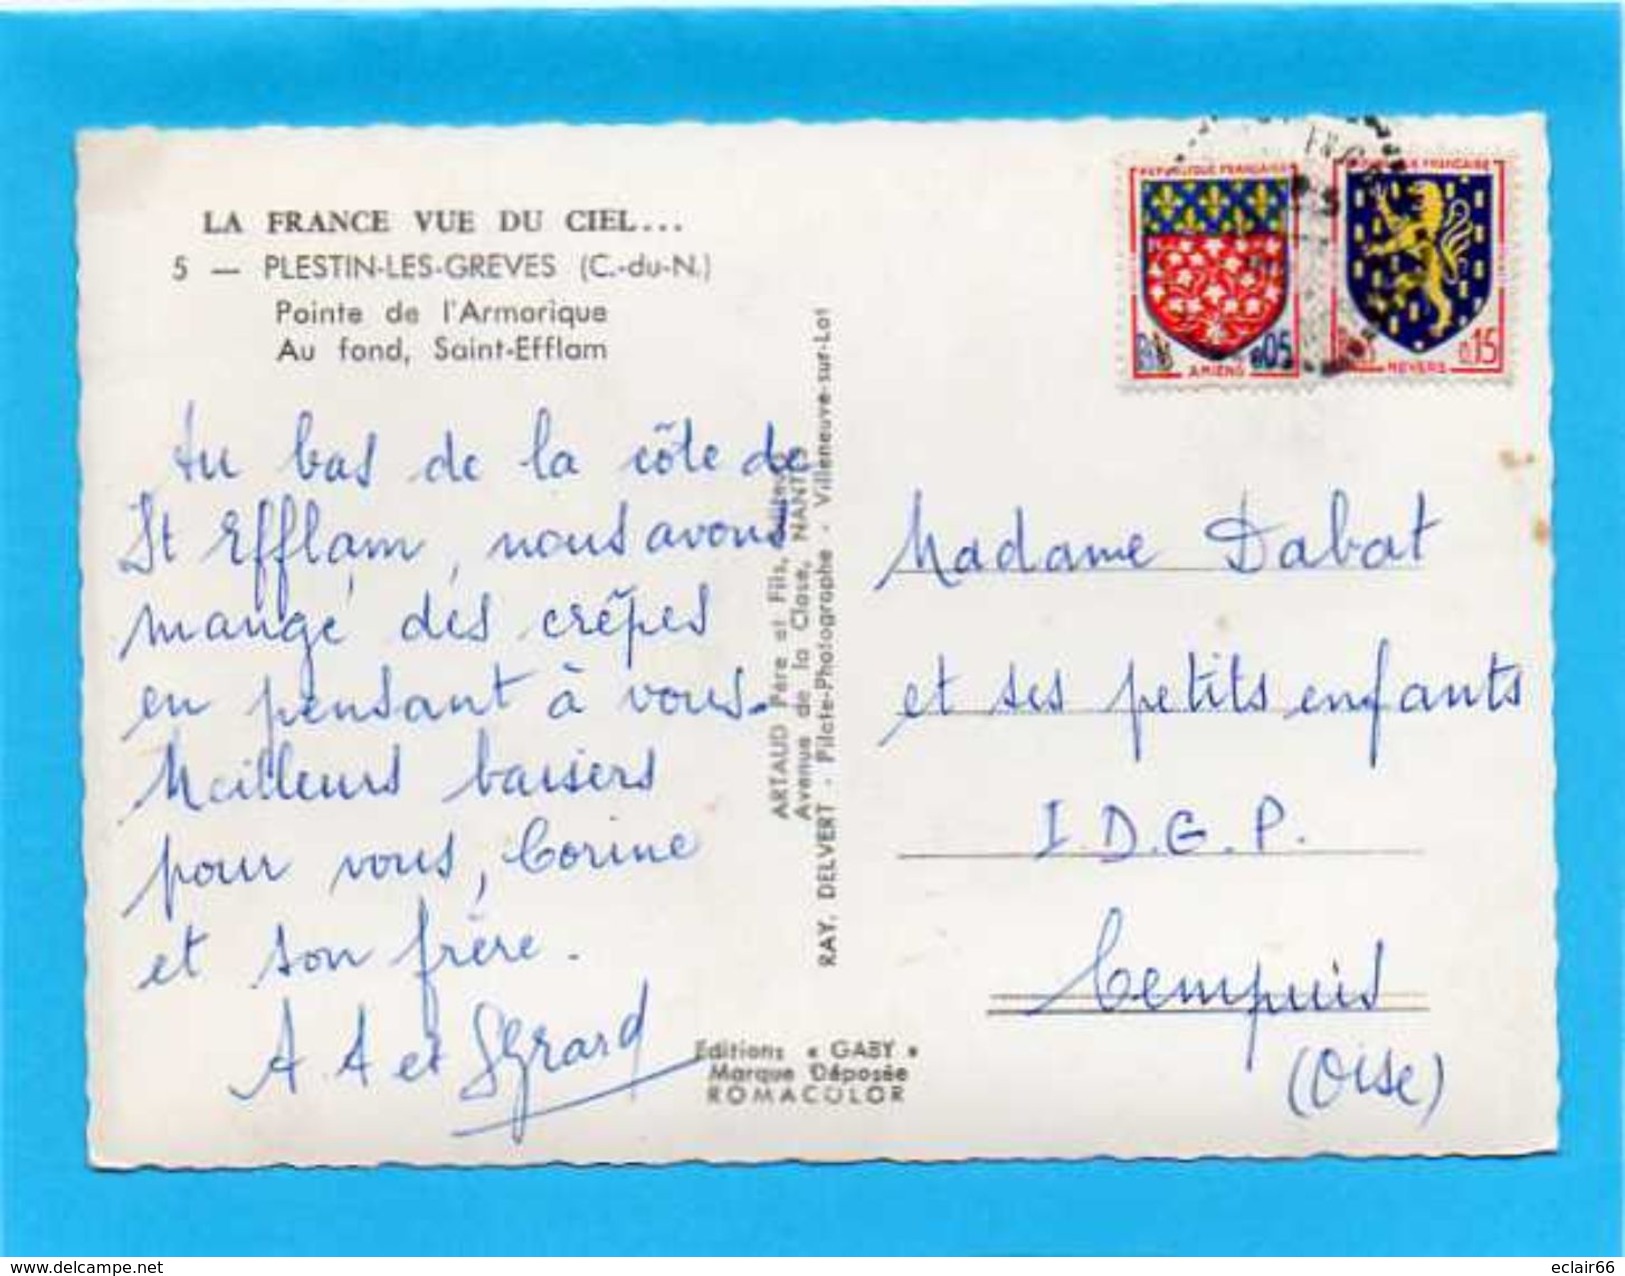 LA FRANCE VUE DU CIEL...
5 — PLESTIN-LES-GREVES (C.-du-N.)
Pointe de l'Armorique
Au fond, Saint-Efflam
Au bas de la côte de
St Efflam, nous avons
mangé des crêpes
en pensant à vous.
Meilleurs baisers
pour vous, Corine
et son frère.
A. A et Gérard
ARTAUD Père et Fils,
Avenue de la Close, NANTES
RAY. DELVERT - Pilote-Photographe - Villeneuve-sur-Lot
Editions « GABY »
Marque Déposée
ROMACOLOR
REPUBLIQUE FRANÇAISE
0,05
AMIENS
REPUBLIQUE FRANÇAISE
0,15
NEVERS
Madame Dabat
et ses petits enfants
I.D.G.P.
Cempuis
(Oise)
www.delcampe.net
eclair66